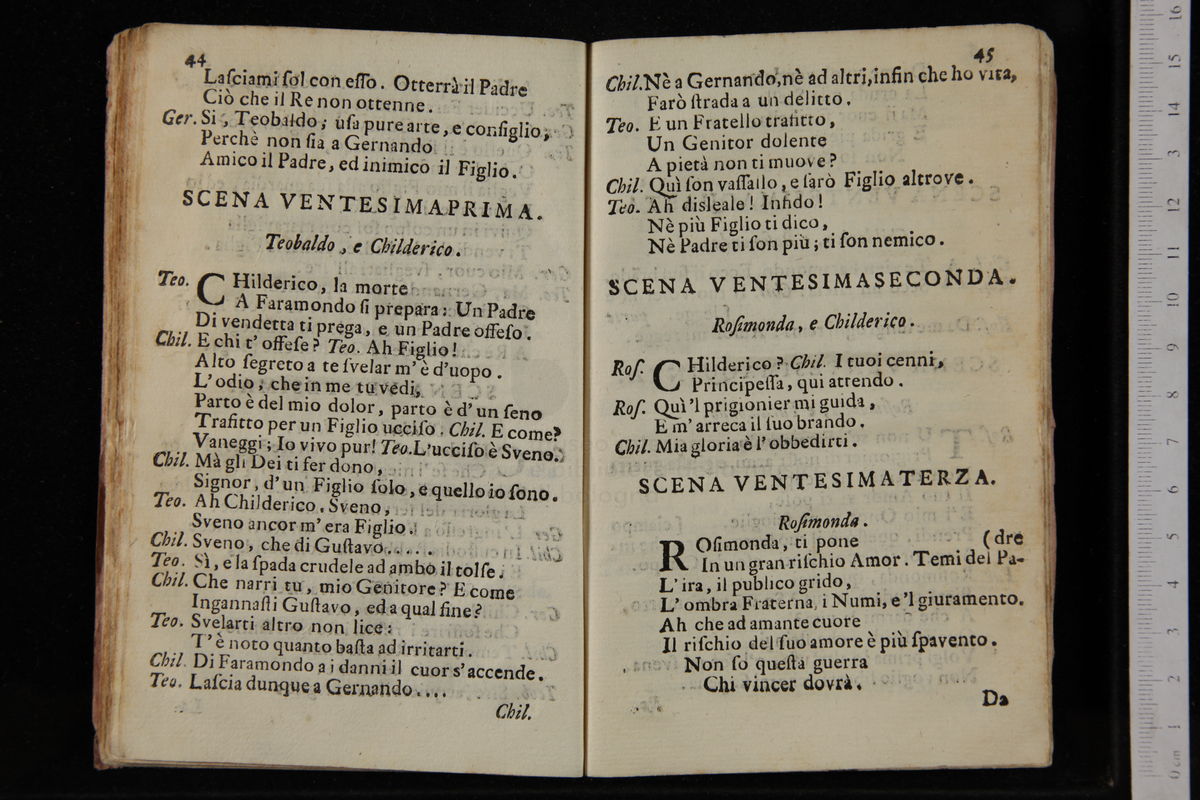 44
Laſciami ſol con eſſo. Otterrà il Padre
Ciò che il Re non ottenne.
Ger. Si, Teobaldo; uſa pure arte, e conſiglio;
Perchè non ſia a Gernando
Amico il Padre, ed inimico il Figlio.
SCENA VENTESIMAPRIMA.
Teobaldo, e Childerico.
Teo. CHilderico, la morte
A Faramondo ſi prepara: Un Padre
Di vendetta ti prega, e un Padre offeſo.
Chil. E chi t' offeſe? Teo. Ah Figlio!
Alto ſegreto a te ſvelar m' è d'uopo.
L' odio, che in me tu vedi,
Parto è del mio dolor, parto è d' un ſeno
Trafitto per un Figlio ucciſo. Chil. E come?
Vaneggi; Io vivo pur! Teo. L'ucciſo è Sveno.
Chil. Mà gli Dei ti fer dono,
Signor, d' un Figlio ſolo, e quello io ſono.
Teo. Ah Childerico. Sveno,
Sveno ancor m' era Figlio.
Chil. Sveno, che di Guſtavo.....
Teo. Sì, e la ſpada crudele ad ambo il tolſe.
Chil. Che narri tu, mio Genitore? E come
Ingannaſti Guſtavo, ed a qual fine?
Teo. Svelarti altro non lice:
T' è noto quanto baſta ad irritarti.
Chil. Di Faramondo a i danni il cuor s' accende.
Teo. Laſcia dunque a Gernando....
Chil.
45
Chil. Nè a Gernando, nè ad altri, infin che ho vita,
Farò ſtrada a un delitto.
Teo. E un Fratello trafitto,
Un Genitor dolente
A pietà non ti muove?
Chil. Quì ſon vaſſallo, e ſarò Figlio altrove.
Teo. Ah disleale! Infido!
Nè più Figlio ti dico,
Nè Padre ti ſon più; ti ſon nemico.
SCENA VENTESIMASECONDA.
Roſimonda, e Childerico.
Roſ. CHilderico? Chil. I tuoi cenni,
Principeſſa, qui attendo.
Roſ. Quì 'l prigionier mi guida,
E m' arreca il ſuo brando.
Chil. Mia gloria è l' obbedirti.
SCENA VENTESIMATERZA.
Roſimonda.
ROſimonda, ti pone (dre
In un gran riſchio Amor. Temi del Pa-
L' ira, il publico grido,
L' ombra Fraterna, i Numi, e 'l giuramento.
Ah che ad amante cuore
Il riſchio del ſuo amore è più ſpavento.
Non ſo queſta guerra
Chi vincer dovrà.
Da